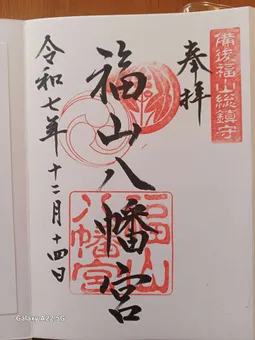 備後福山総鎮守
奉拝
福山八幡宮
福山
八幡宮
令和七年十二月十四日
Galaxy A22 5G